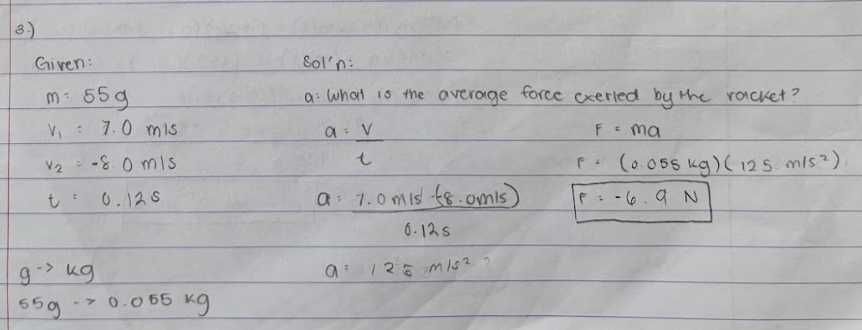 3.)
Given: Sol'n:
m: 55g a: What is the average force exerted by the racket?
v₁ : 7.0 m/s a : v F = ma
v₂ = -8.0 m/s t F = (0.055 kg)(125 m/s²)
t : 0.12s a : 7.0 m/s -(8.0 m/s) F : -6.9 N
0.12s
g -> kg a: 125 m/s²
55g -> 0.055 kg